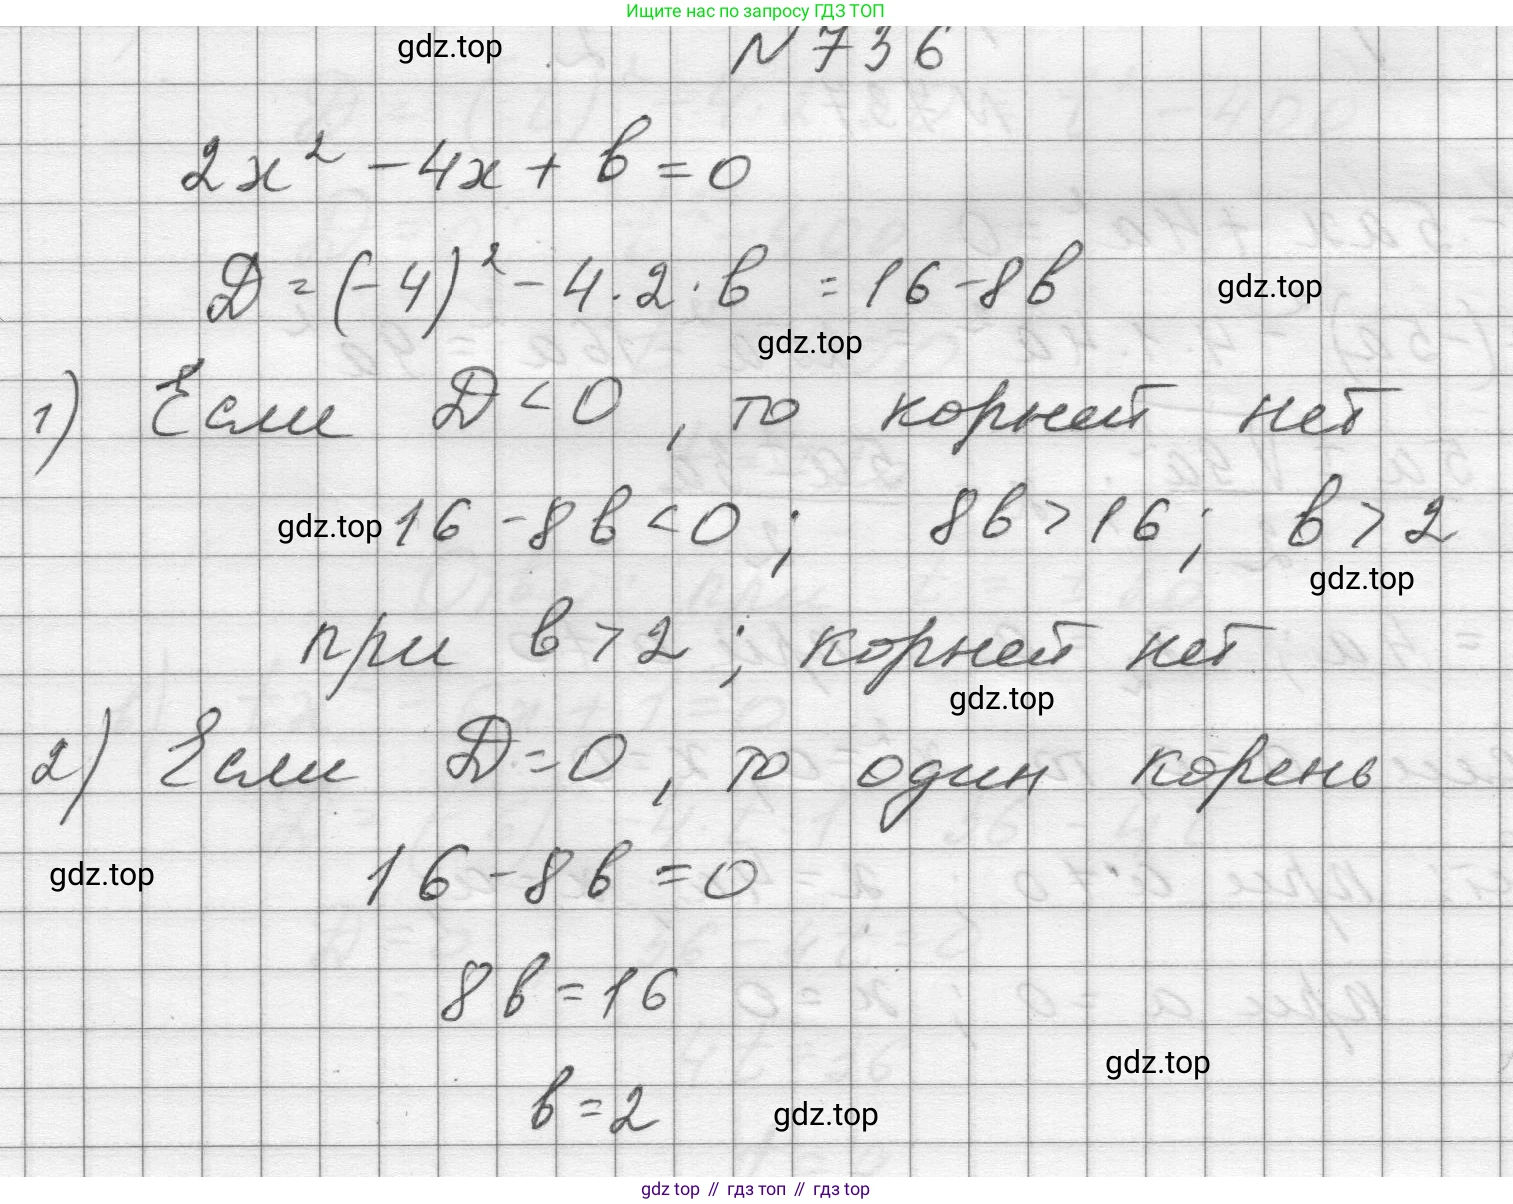 Ищите нас по запросу ГДЗ ТОП
gdz.top
N 736
2x² - 4x + b = 0
D = (-4)² - 4 · 2 · b = 16 - 8b
gdz.top
gdz.top
1) Если D < 0, то корней нет
gdz.top 16 - 8b < 0; 8b > 16; b > 2
gdz.top
при b > 2; корней нет
gdz.top
2) Если D = 0, то один корень
gdz.top
16 - 8b = 0
8b = 16
gdz.top
b = 2
gdz.top
gdz top // гдз топ // гдз top